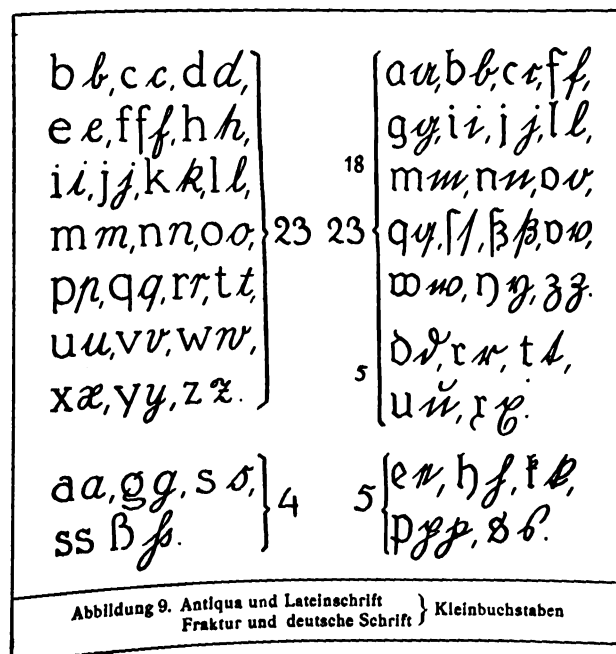 b b, c c, d d,
e e, f f f, h h,
i i, j j, k k, l l,
m m, n n, o o,
p p, q q, r r, t t,
u u, v v, w w,
x x, y y, z z.
23
a a, g g, s s,
ss ß ß.
4
a a, b b, c c, f f,
g g, i i, j j, l l,
m m, n n, o o,
q q, ſ ſ, ß ß, v v,
w w, y y, z z.
18
d d, r r, t t,
u u, x x.
5
23
e e, h h, k k,
p p p, s s.
5
Abbildung 9. Antiqua und Lateinschrift
Fraktur und deutsche Schrift } Kleinbuchstaben